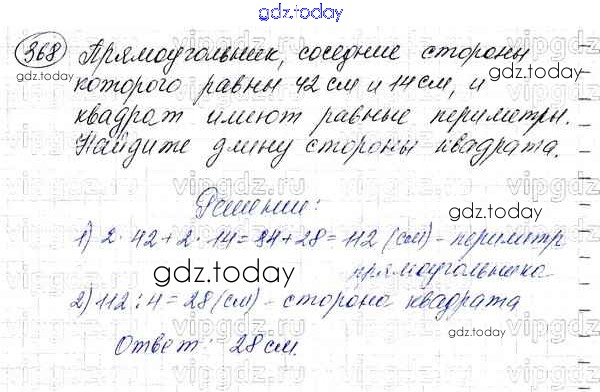 gdz.today
368 Прямоугольник, соседние стороны
gdz.today
которого равны 42 см и 14 см, и
квадрат имеют равные периметры.
Найдите длину стороны квадрата.
vipgdz.ru
Решение:
gdz.today
1) 2·42+2·14=84+28=112 (см) - периметр
прямоугольника
gdz.today
2) 112:4=28 (см) - сторона квадрата
Ответ: 28 см.
gdz.today